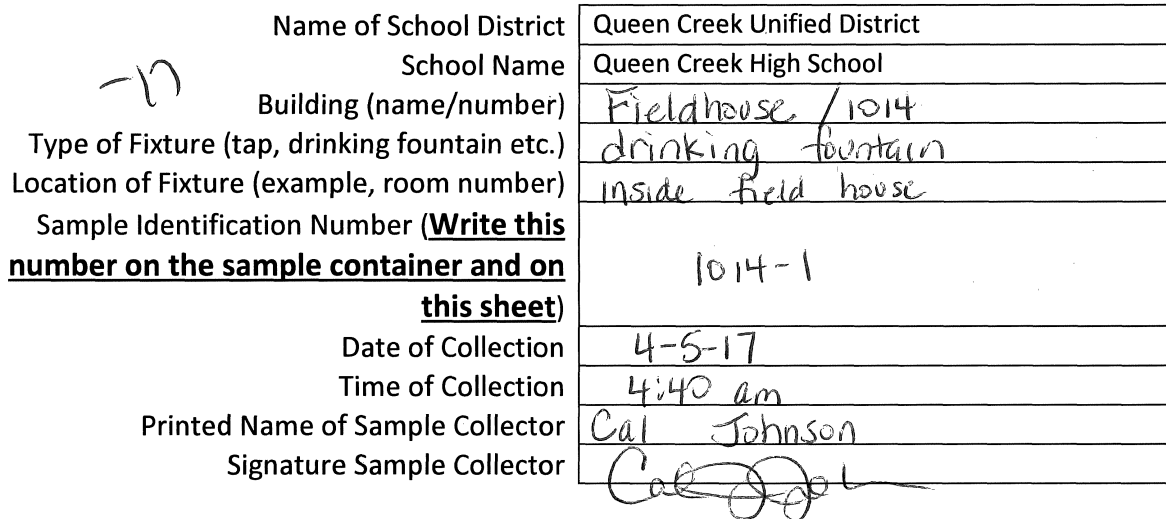 Name of School District Queen Creek Unified District
School Name Queen Creek High School
-17
Building (name/number) Fieldhouse / 1014
Type of Fixture (tap, drinking fountain etc.) drinking fountain
Location of Fixture (example, room number) inside field house
Sample Identification Number (Write this
number on the sample container and on
this sheet) 1014-1
Date of Collection 4-5-17
Time of Collection 4:40 am
Printed Name of Sample Collector Cal Johnson
Signature Sample Collector